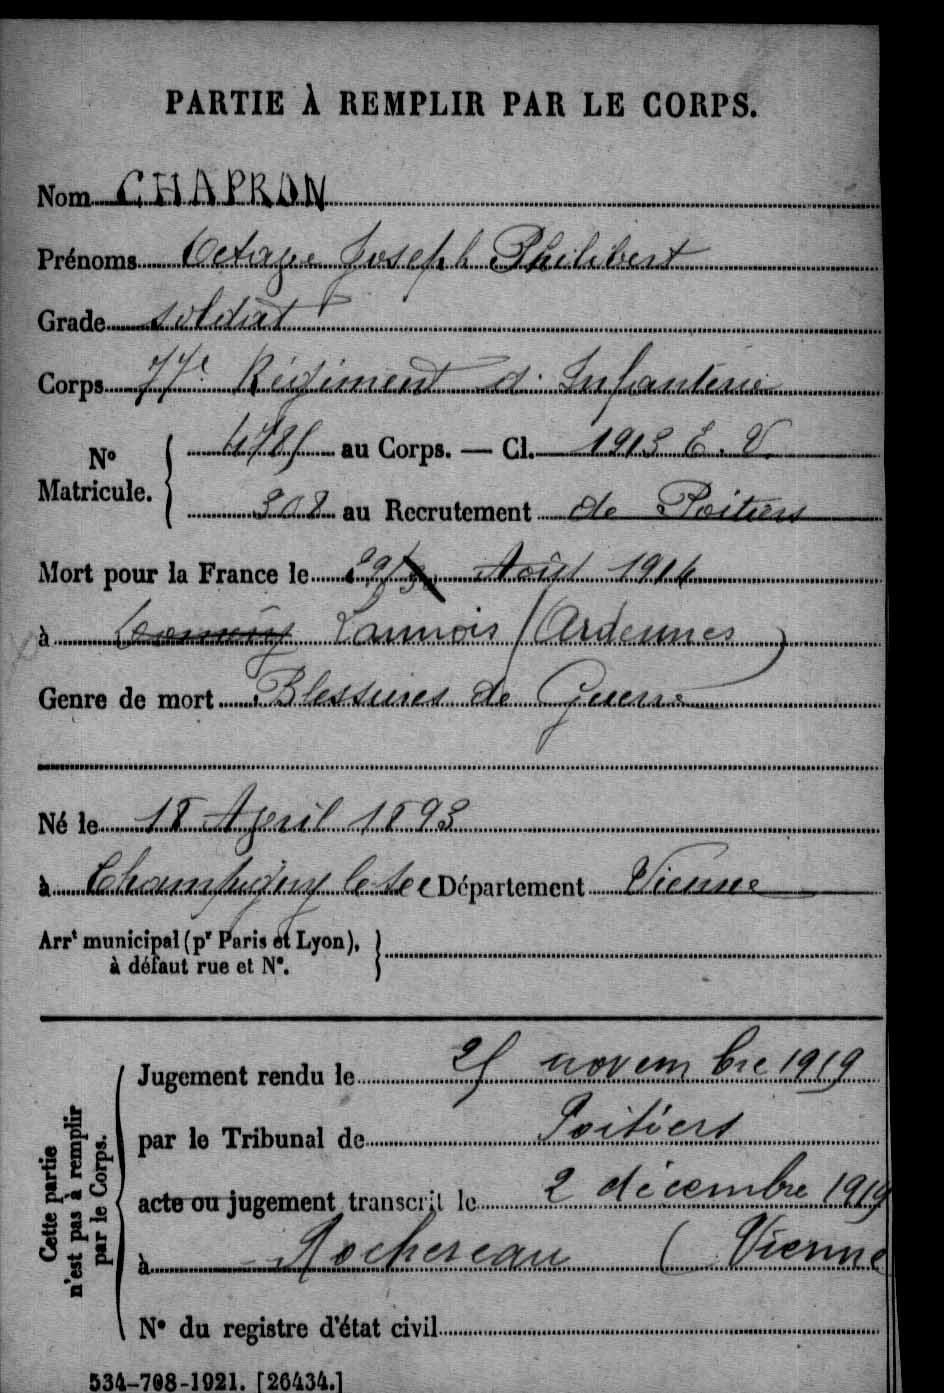 PARTIE À REMPLIR PAR LE CORPS.
Nom CHAPRON
Prénoms Octave Joseph Philibert
Grade soldat
Corps 77e Régiment d'Infanterie
N° Matricule. 4785 au Corps. — Cl. 1913 E. V.
308 au Recrutement de Poitiers
Mort pour la France le 29 Août 1914
à Launois (Ardennes)
Genre de mort Blessures de Guerre
Né le 18 April 1893
à Champigny le Sec Département Vienne
Arrt municipal (pr Paris et Lyon),
à défaut rue et N°.
Cette partie n'est pas à remplir par le Corps.
Jugement rendu le 25 novembre 1919
par le Tribunal de Poitiers
acte ou jugement transcrit le 2 décembre 1919
à Rochereau (Vienne
N° du registre d'état civil
534-708-1921. [26434.]